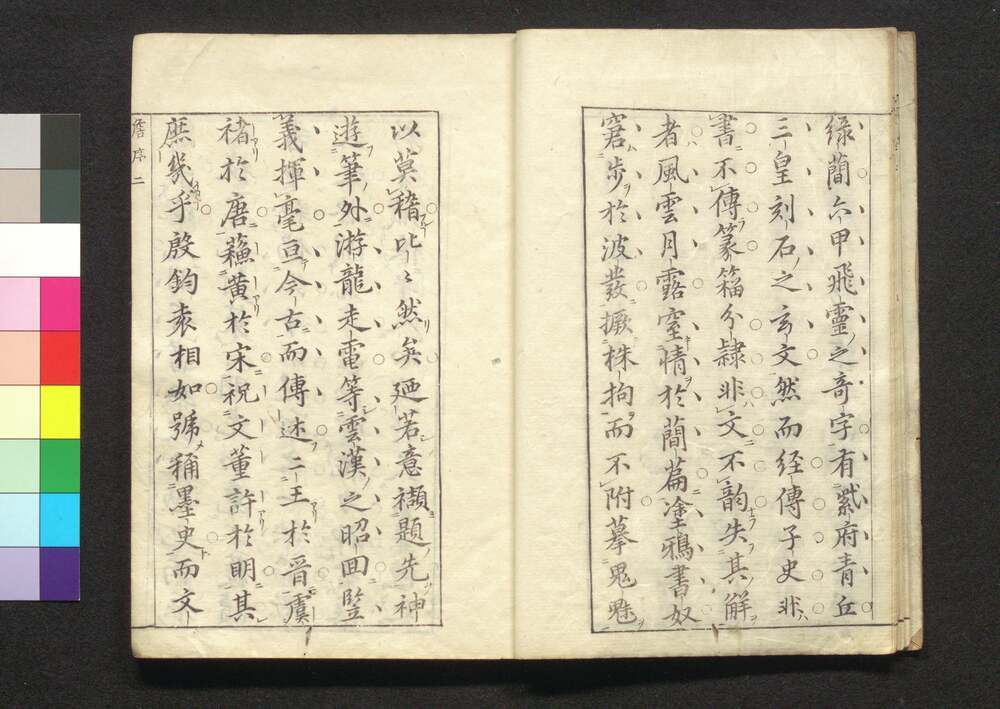 緑蕳六甲飛靈之竒字有紫府青丘
三皇刻石之玄文然而経傳子史非
書不傳篆籀分隷非文不韵失其解
者風雲月露窒情於蕳篇塗鴉書奴
窘步於波發橛株拘而不附摹鬼魅
以莫稽比〻然矣廼若意纈題先神
逰筆外游龍走電等雲漢之昭回監
義揮毫亘今古而傳述二王於晋虞
褚於唐蘓黄於宋祝文董許於明其
庶幾乎殷鈞表相如號稱墨史而文
序二